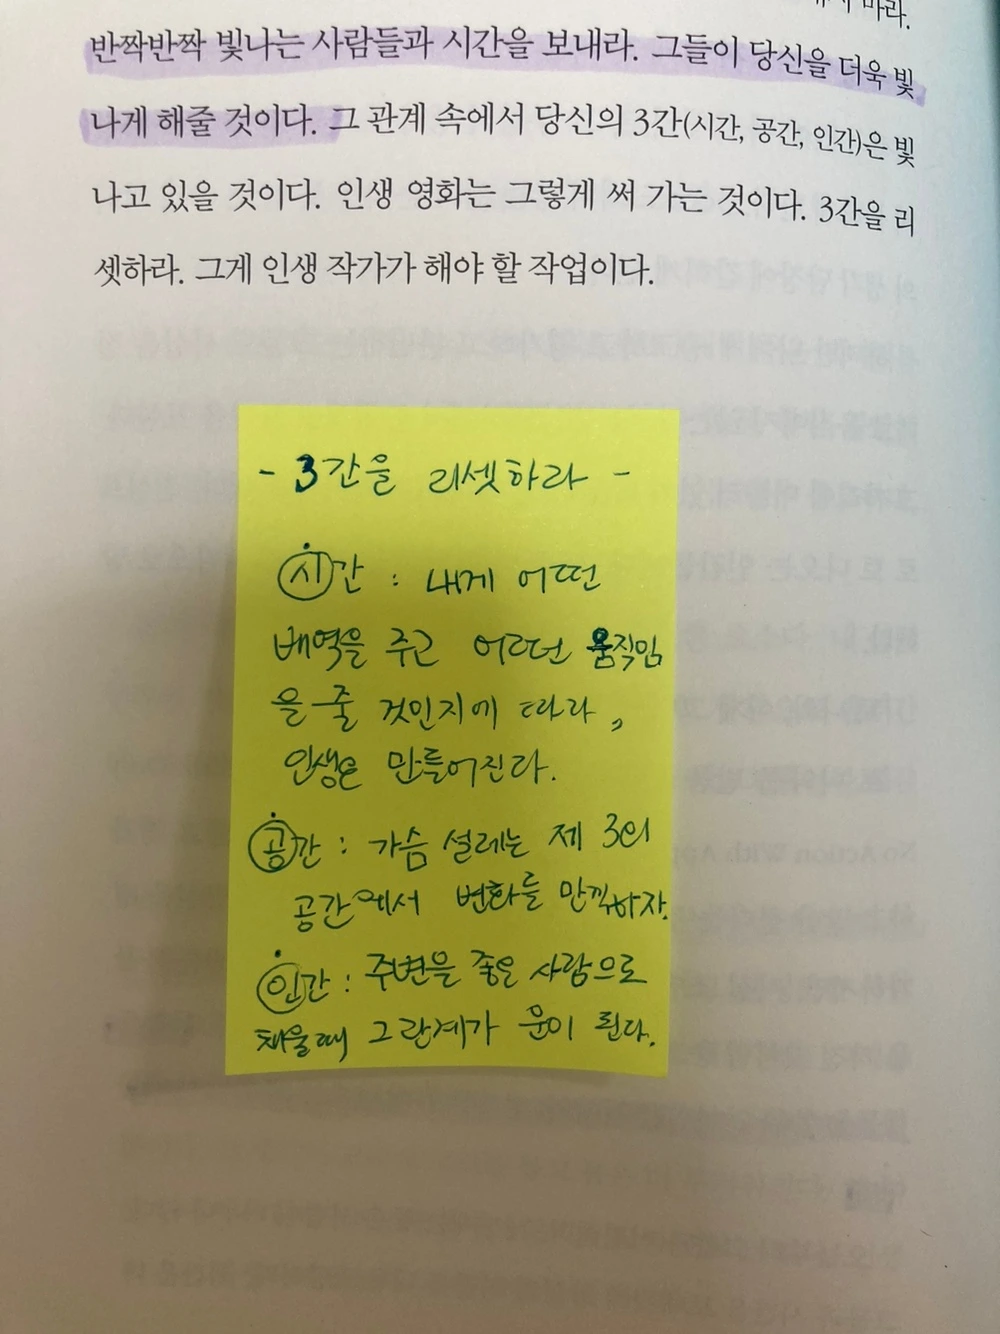 마라.
반짝반짝 빛나는 사람들과 시간을 보내라. 그들이 당신을 더욱 빛
나게 해줄 것이다. 그 관계 속에서 당신의 3간(시간, 공간, 인간)은 빛
나고 있을 것이다. 인생 영화는 그렇게 써 가는 것이다. 3간을 리
셋하라. 그게 인생 작가가 해야 할 작업이다.
- 3간을 리셋하라 -
시간 : 내게 어떤
배역을 주고 어떠던 움직임
을 줄 것인지에 따라,
인생은 만들어진다.
공간 : 가슴 설레는 제 3의
공간에서 변화를 만끽하자.
인간 : 주변을 좋은 사람으로
채울때 그 관계가 운이 된다.